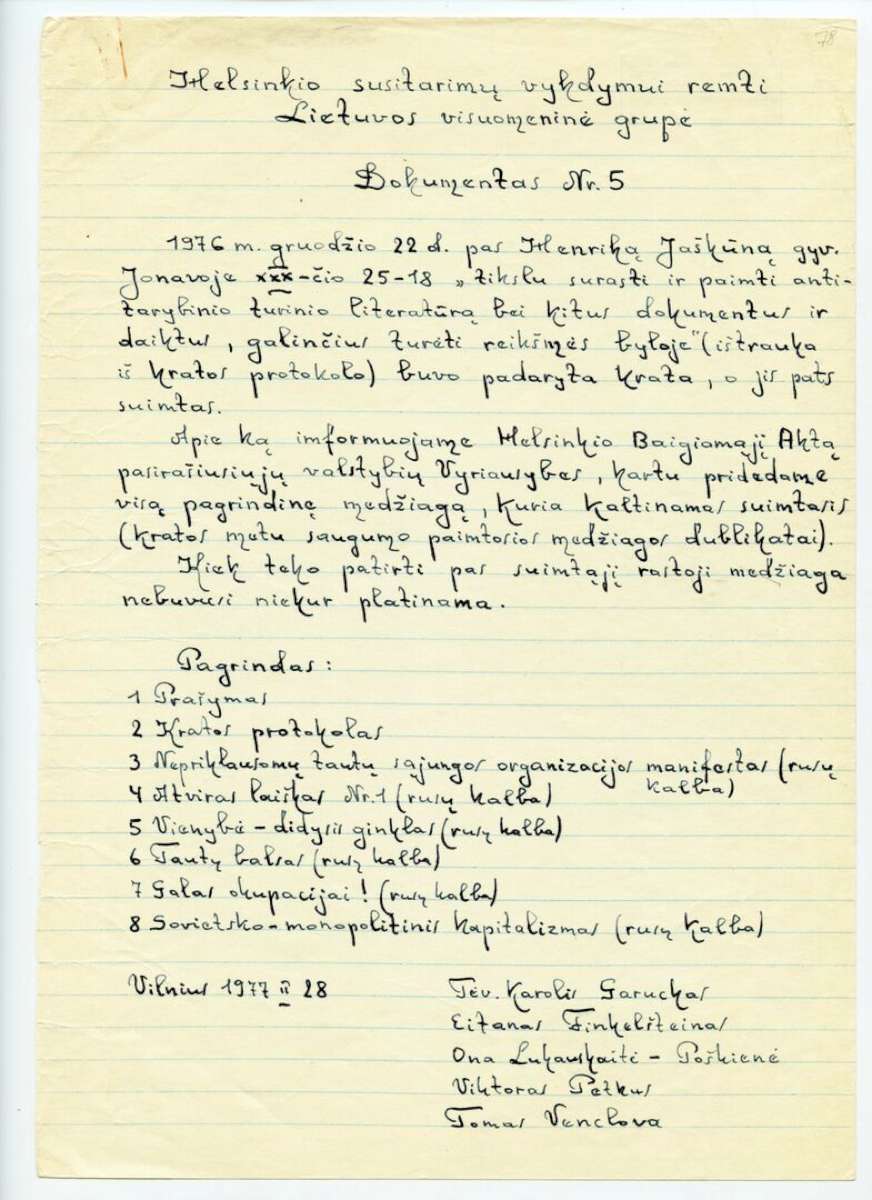 78
Helsinkio susitarimų vykdymui remti
Lietuvos visuomeninė grupė
Dokumentas Nr. 5
1976 m. gruodžio 22 d. pas Henriką Jaškūną gyv.
Jonavoje XXX-čio 25-18 „tikslu surasti ir paimti anti-
tarybinio turinio literatūrą bei kitus dokumentus ir
daiktus, galinčius turėti reikšmės byloje" (ištrauka
iš kratos protokolo) buvo padaryta krata, o jis pats
suimtas.
Apie ką imformuojame Helsinkio Baigiamąjį Aktą
pasirašiusiųjų valstybių Vyriausybes, kartu pridedame
visą pagrindinę medžiagą, kuria kaltinamas suimtasis
(kratos metu saugumo paimtosios medžiagos dublikatai).
Kiek teko patirti pas suimtąjį rastoji medžiaga
nebuvusi niekur platinama.
Pagrindas:
1 Prašymas
2 Kratos protokolas
3 Nepriklausomų tautų sąjungos organizacijos manifestas (rusų
kalba)
4 Atviras laiškas Nr. 1 (rusų kalba)
5 Vienybė - didysis ginklas (rusų kalba)
6 Tautų balsas (rusų kalba)
7 Galas okupacijai! (rusų kalba)
8 Sovietsko-monopolitinis kapitalizmas (rusų kalba)
Vilnius 1977 II 28
Tėv. Karolis Garuckas
Eitanas Finkelšteinas
Ona Lukauskaitė - Poškienė
Viktoras Petkus
Tomas Venclova